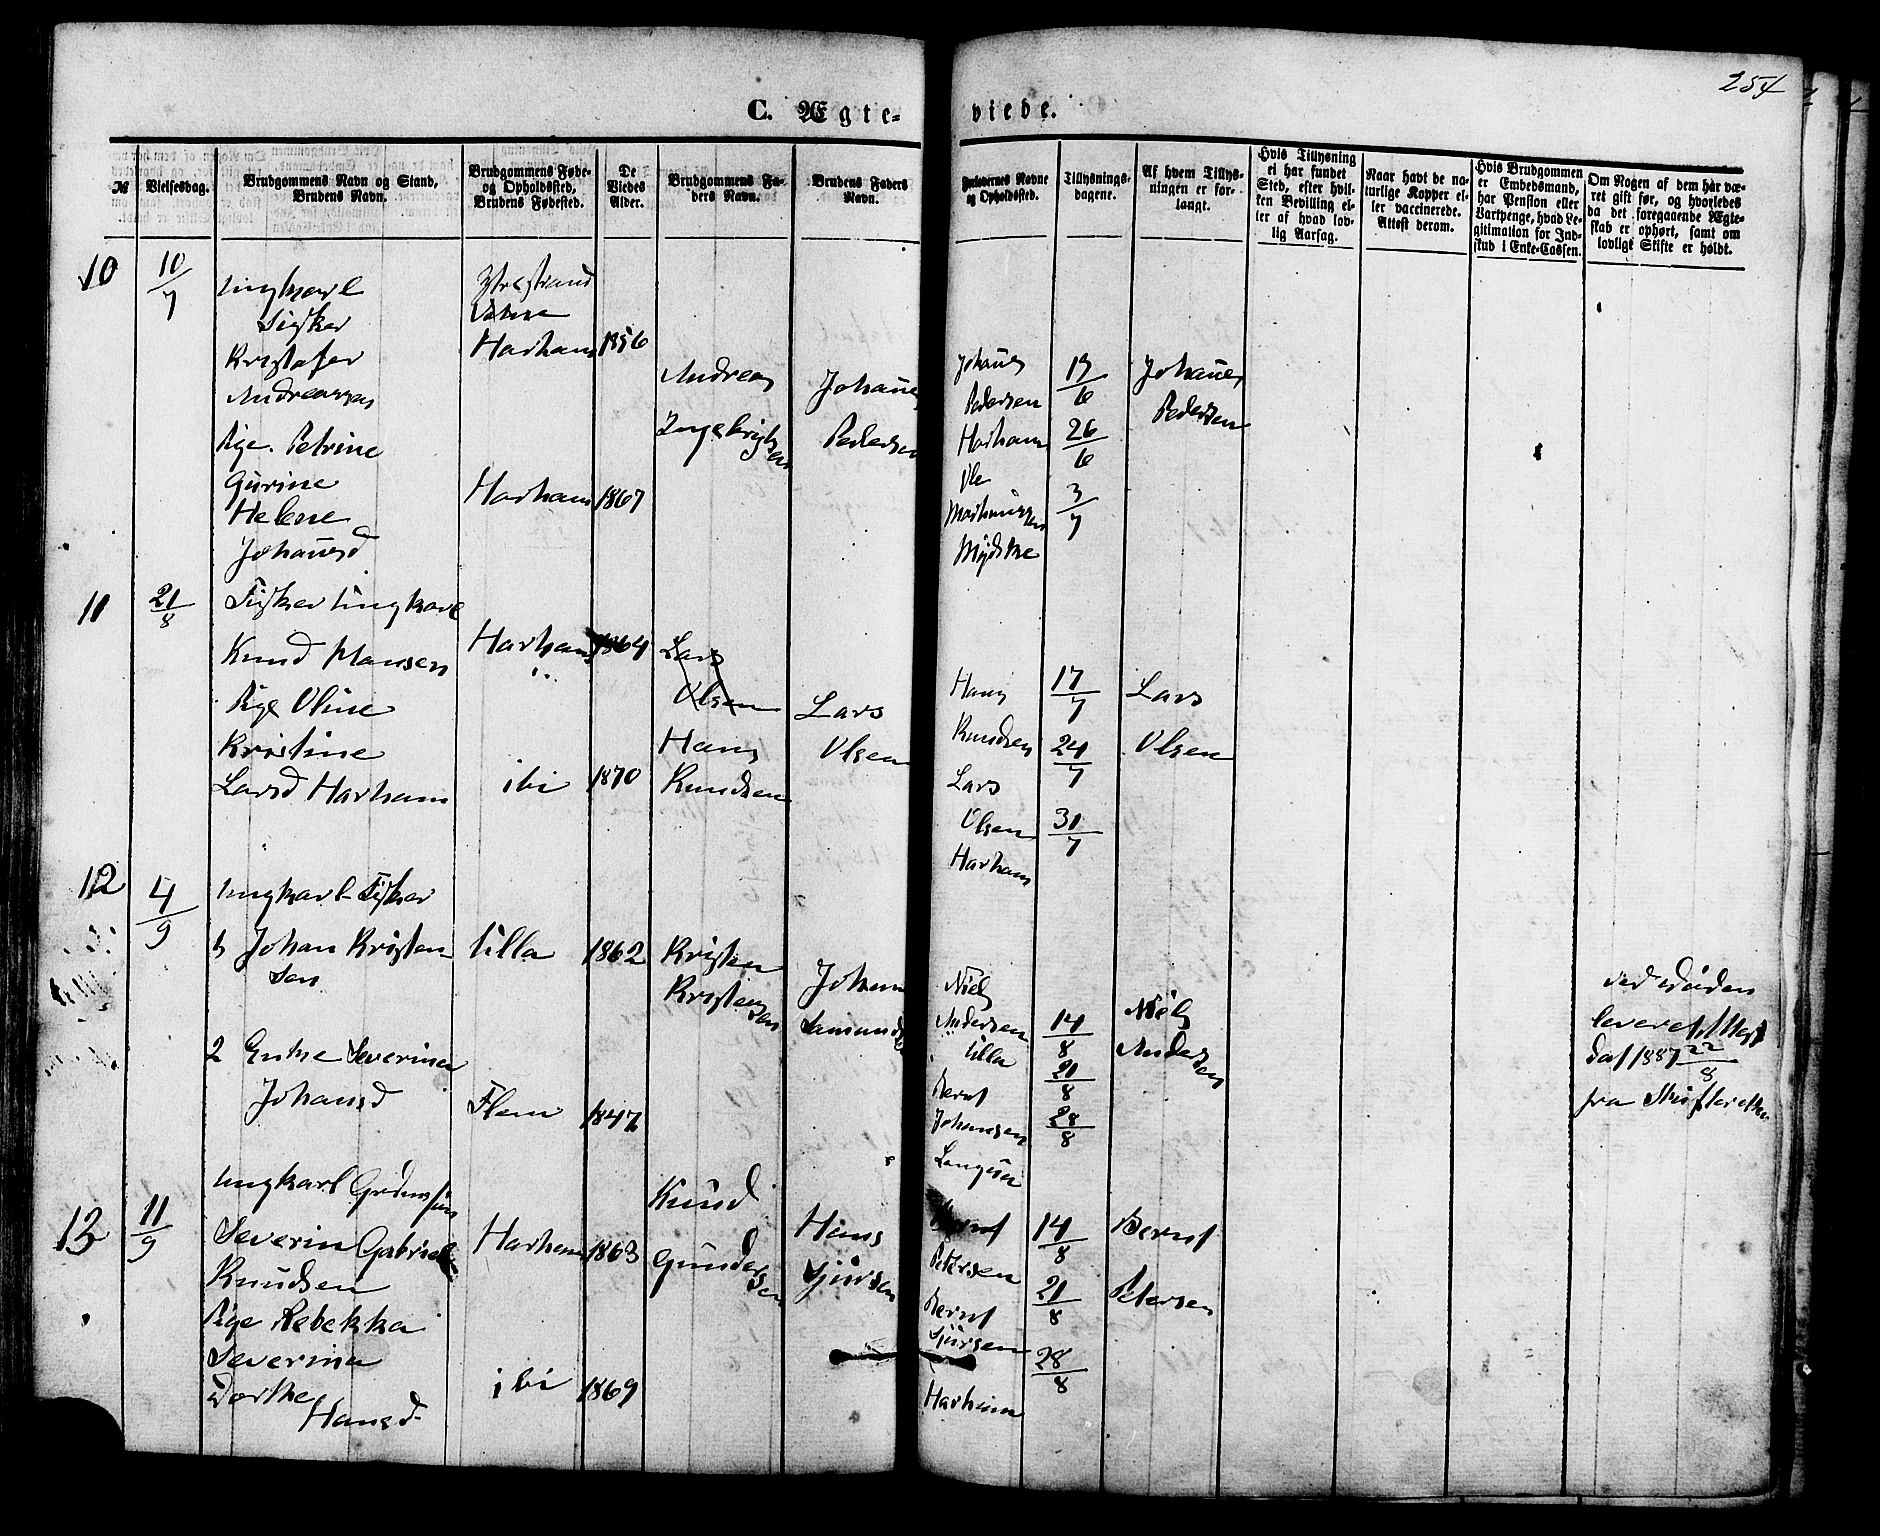 254
C. Ægte- viede.
№
Vielsesdag.
Brudgommens Navn og Stand,
Brudens Navn.
Brudgommens Føde-
og Opholdssted,
Brudens Fødested.
De
Viedes
Alder.
Brudgommens Fa-
ders Navn.
Brudens Faders
Navn.
Forlovernes Navne
og Opholdssted.
Tillysnings-
dagene.
Af hvem Tillys-
ningen er for-
langt.
Hvis Tillysning
ei har fundet
Sted, efter hvil-
ken Bevilling el-
ler af hvad lov-
lig Aarsag.
Naar havt de na-
turlige Kopper el-
ler vaccinerede.
Attest derom.
Hvis Brudgommen
er Embedsmand,
har Pension eller
Vartpenge, hvad Le-
gitimation for Ind-
skud i Enke-Cassen.
Om Nogen af dem har væ-
ret gift før, og hvorledes
da det foregaaende Ægte-
skab er ophørt, samt om
lovligt Skifte er holdt.
10
10/7
Ungkarl
Fisker
Kristofer
Andreassen
Pige. Petrine
Gurine
Helene
Johansd
Harham
1856
Harham
1867
Andreas
Ingebrigtsen
Johannes
Pedersen
Johannes
Pedersen
Harham
Ole
Mathiassen
Mydske
13/6
26/6
3/7
Johannes
Pedersen
11
21/8
Fisker Ungkarl
Knud Hansen
Pige Oline
Kristine
Larsd Harham
Harham
1864
ibi
1870
Lars
Olsen
Hans
Knudsen
Lars
Olsen
Hans
Knudsen
Lars
Olsen
Harham
17/7
24/7
31/7
Lars
Olsen
12
4/9
Ungkarl Fisker
Johan Kristen-
sen
2 Enke Severina
Johansd
Ulla
1862
Flem
1847
Kristen
Kristensen
Johan
Niels
Andersen
Ulla
Bernt
Johansen
Longva
14/8
21/8
28/8
Niels
Andersen
1887 22/8
fra Skifteretten
13
11/9
Ungkarl
Severin Gabriel
Knudsen
Pige Rebekka
Severina
Dorthe
Hansd
Harham
1863
ibi
1869
Knud
Gundersen
Hans
Sjursen
Bernt
Petersen
Bernt
Sjursen
Harham
14/8
21/8
28/8
Bernt
Petersen